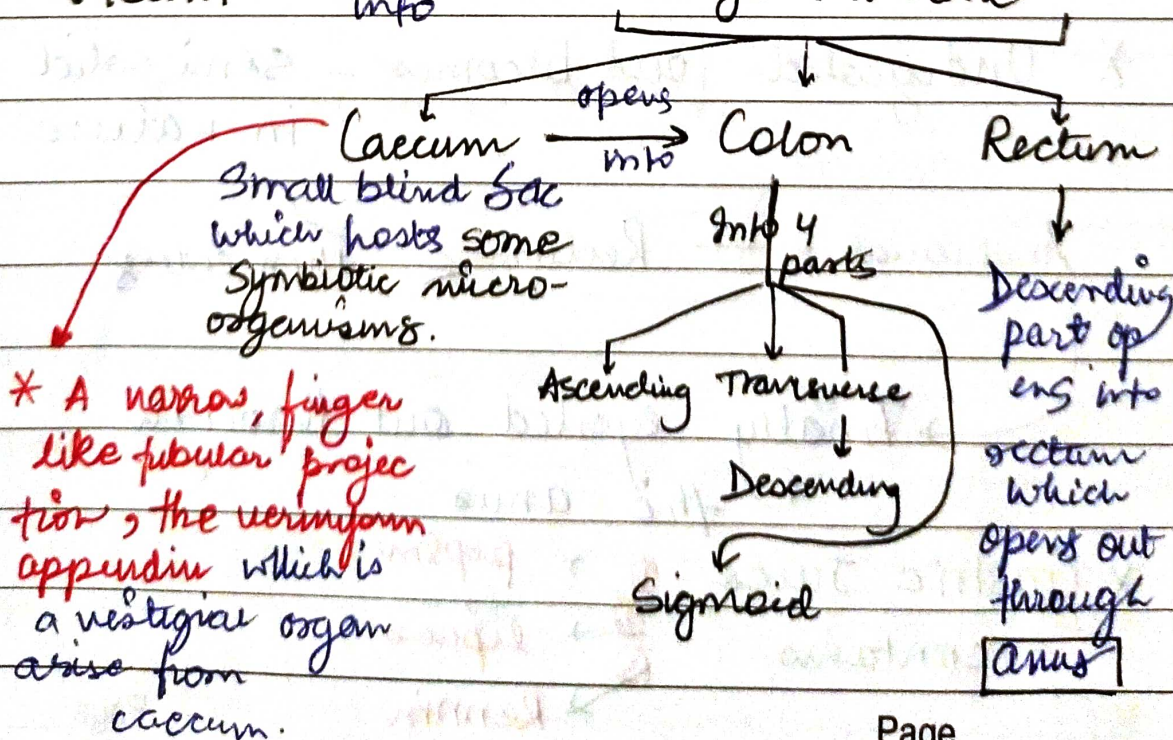 into
Caecum opens into Colon Rectum
Small blind Sac
which hosts some
Symbiotic micro-
organisms.
Into 4
parts
Ascending Transverse
Descending
Sigmoid
Descending
part op
ens into
rectum
which
opens out
through
anus
* A narrow, finger
like tubular projec
tion, the vermiform
appendix which is
a vestigial organ
arise from
caecum.
Page